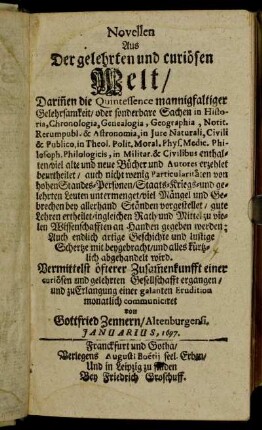 Novellen
Aus
Der gelehrten und curiösen
Welt/
Dariñen die Quintessence mannigfaltiger
Gelehrsamkeit/ oder sonderbare Sachen in Histo-
ria, Chronologia, Genealogia, Geographia, Notit.
Rerumpubl. & Astronomia, in Jure Naturali, Civili
& Publico, in Theol. Polit. Moral. Phys. Medic. Phi-
losoph. Philologicis, in Militar. & Civilibus enthal-
ten/ viel alte und neue Bücher und Autores erzehlet
beurtheilet/ auch nicht wenig Particularitäten von
hohen Standes-Personen/ Staats-Kriegs- und ge-
lehrten Leuten untermenget/ viel Mängel und Ge-
brechen bey allerhand Ständen vorgestellet/ gute
Lehren ertheilet/ ingleichen Rath und Mittel zu vie-
len Wissenschafften an Handen gegeben werden;
Auch endlich artige Geschichte und lustige
Schertze mit beygebracht/ und alles kürtz-
lich abgehandelt wird.
Vermittelst öfterer Zusamenkunfft einer
curiösen und gelehrten Gesellschafft ergangen/
und zu Erlangung einer galanten Erudition
monatlich communiciret
von
Gottfried Zennern/ Altenburgensi.
JANUARIUS, 1697.
Franckfurt und Gotha/
Verlegens Augusti Boëtii seel. Erben/
Und in Leipzig zu finden
Bey Friedrich Groschuff.